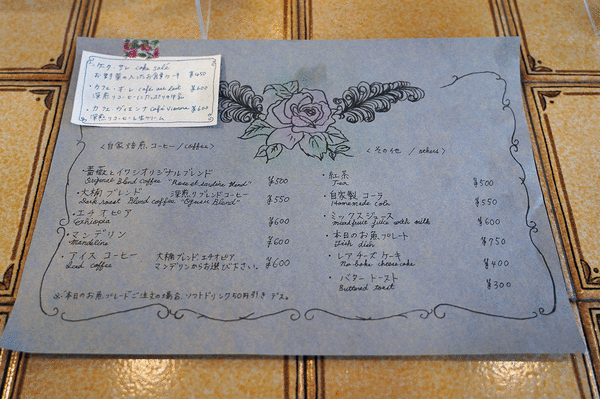 ・ケーク・サレ cake salé
お野菜の入ったお食事ケーキ ¥450
・カフェ・オレ café au lait ¥600
深煎りコーヒーにたっぷりの牛乳
・カフェ ヴィエンナ Café Vienna ¥600
深煎りコーヒーと生クリーム
〈自家焙煎コーヒー/coffee〉
・薔薇とイワシオリジナルブレンド
Original Blend coffee "Rose et sardine Blend" ¥500
・大槻ブレンド 深煎りブレンドコーヒー
Dark roast Blend coffee "Ogusu Blend" ¥550
・エチオピア
Ethiopia ¥600
・マンデリン
Mandeline ¥600
・アイス コーヒー 大槻ブレンド、エチオピア
Iced coffee マンデリンからお選び下さい。 ¥600
※本日のお魚プレートご注文の場合、ソフトドリンク50円引きデス。
〈その他 / others〉
・紅茶
Tea ¥500
・自家製 コーラ
Homemade cola ¥550
・ミックスジュース
mixed fruit juice with milk ¥600
・本日のお魚プレート
Fish dish ¥750
・レアチーズケーキ
No bake cheesecake ¥400
・バタートースト
Buttered toast ¥300